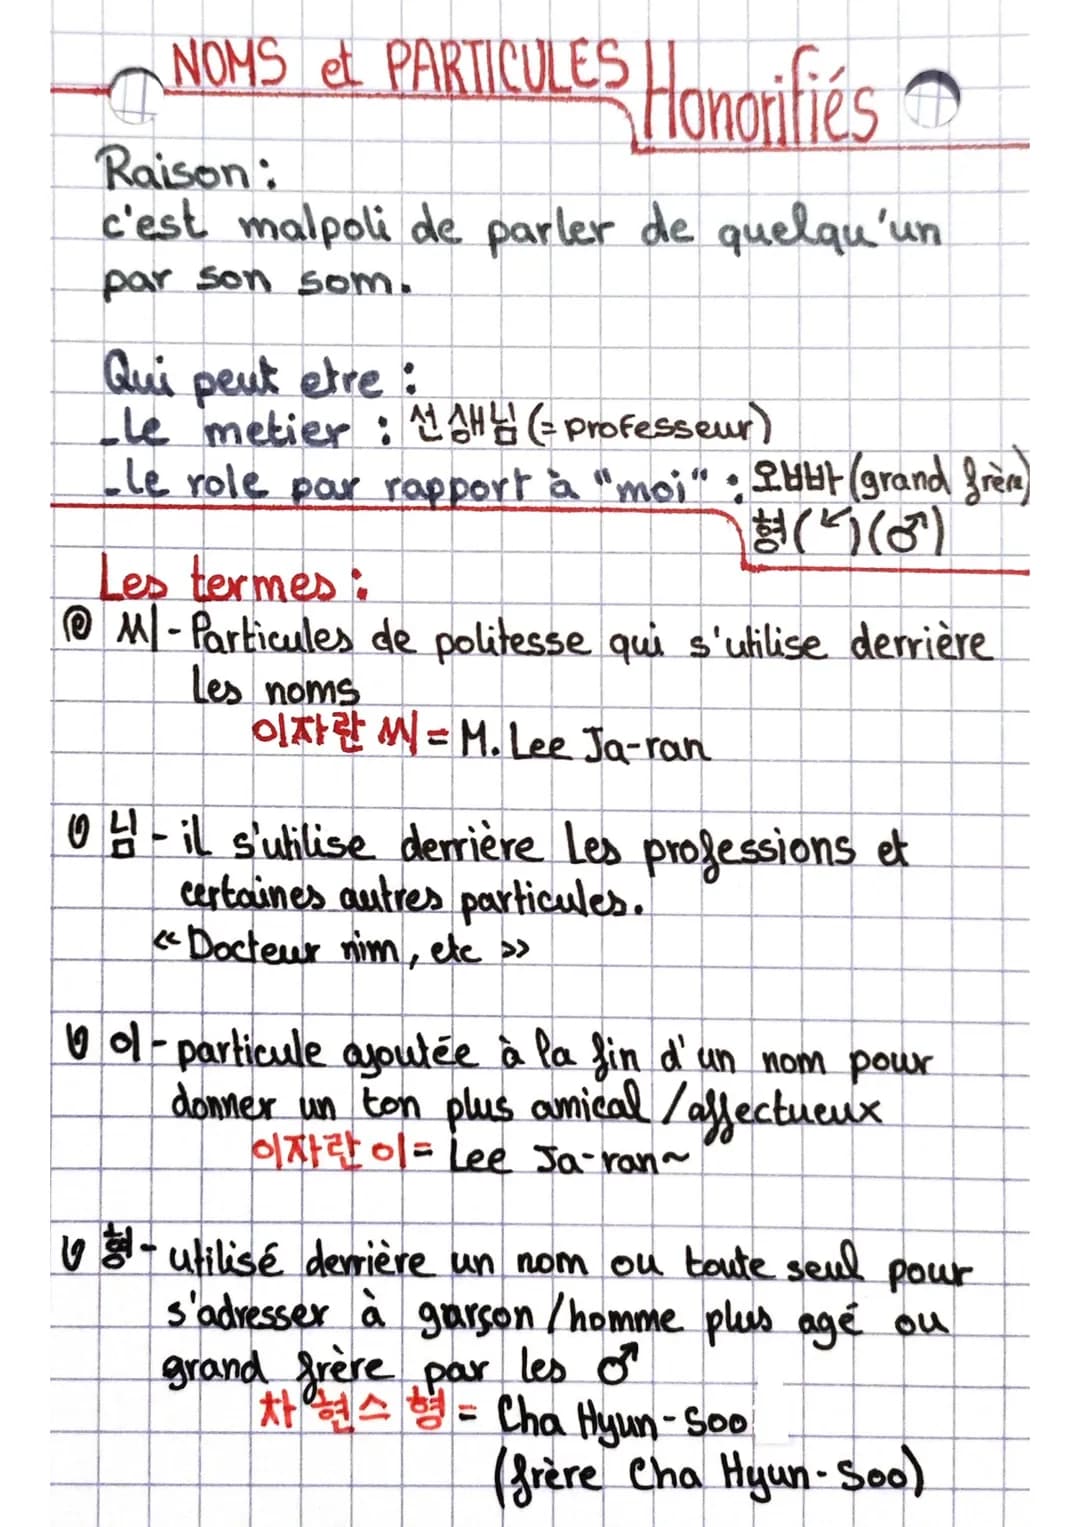 NOMS et PARTICULES Honorifiés
Raison :
c'est malpoli de parler de quelqu'un
par son som.
Qui peut etre :
-le metier : 선생님 (= professeur)
-le role par rapport à "moi" : 오빠 (grand frère)
형 (↙) (♂)
Les termes :
씨 - Particules de politesse qui s'utilise derrière
les noms
이자란 씨 = M. Lee Ja-ran
님 - il s'utilise derrière les professions et
certaines autres particules.
« Docteur nim, etc »
이 - particule ajoutée à la fin d'un nom pour
donner un ton plus amical / affectueux
이자란 이 = Lee Ja-ran~
형 - utilisé derrière un nom ou toute seul pour
s'adresser à garçon / homme plus agé ou
grand frère par les ♂
차 현스 형 = Cha Hyun-Soo
(frère Cha Hyun-Soo)